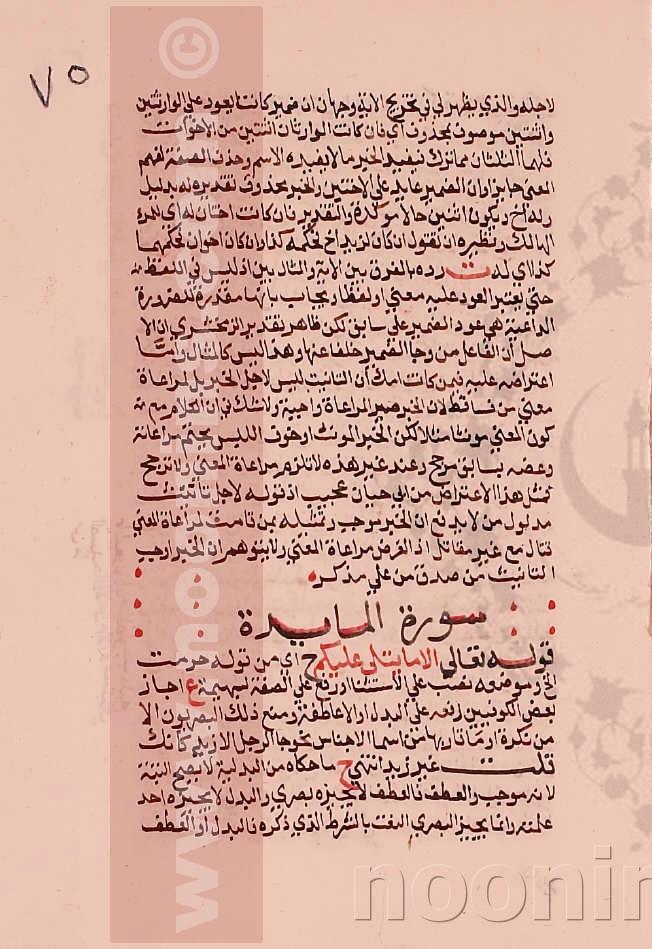 ٧٥
لاجله والذي يظهر لي في تخريج الاية وجهان ان ضمير كانتا يعود على الوارثتين
واثنتين موصوف بمحذوف اي فان كانت الوارثتان اثنتين من الاخوات
فلهما الثلثان مما ترك فيفيد الخبر ما لا يفيده الاسم وحذف الصفة لفهم
المعنى جايز او ان الضمير عايد على الاختين والخبر محذوف لتقديره له بدليل
وله اخ ويكون اثنتين حالا موكدة والتقدير فان كانت اختان له اي للمرء
الهالك ونظيره ان تقول ان كان لزيد اخ فحكمه كذا وان كان اخوان فحكمهما
كذا اي له ت رده بالفرق بين الاية والمثال بين اذ ليس في اللفظ
حتى يعتبر العود عليه معنى او لفظا ويجاب بانها مقدرة للضرورة
الداعية هي عود الضمير على سابق لكن ظاهر تقدير الزمخشري ان الا
صل ان الفاعل من وجا الضمير خلفا عنها وهذا ليس كالمثال واما
اعتراضه عليه فيمن كانت امك ان التانيث ليس لاجل الخبر بل لمراعاة
معنى من فساقط لان الخبر صير المراعاة واجبة ولا شك في ان الكلام مع
كون المعنى مونثا مثلا لكن الخبر المونث او خوف اللبس يحتم مراعاته
وعضه بسابق مرجح وعند غير هذه لا تلزم مراعاة المعنى ولا ترجح
كمثل هذا الاعتراض من ابي حيان عجيب اذ قوله لاجل تانيث
مدلول من لا يدفع ان الخبر موجب وتمثيله بمن قامت لمراعاة المعنى
تنال مع غير مقابل اذ الغرض مراعاة المعنى ولا يتوهم ان الخبر اوجب
التانيث من صدق من على مذكر
سورة المايدة
قوله تعالى الا ما يتلى عليكم ح اي من قوله حرمت
الخ وموضعه نصب على الاستثنا ورفع على الصفة لبهيمة ع اجاز
بعض الكوفيين رفعه على البدل او الا عاطفة ومنع ذلك البصريون الا
من نكرة او ما قاربها من اسما الاجناس نحو جا الرجل الا زيد كانك
قلت غير زيد انتهى ح ما حكاه من البدلية لا يصح البتة
لانه موجب والعطف فالعطف لا يجيزه بصري والبدل لا يجيزه احد
علمته وانما يجيز البصري النعت بالشرط الذي ذكره فالبدل او العطف
www.noonin
noonin